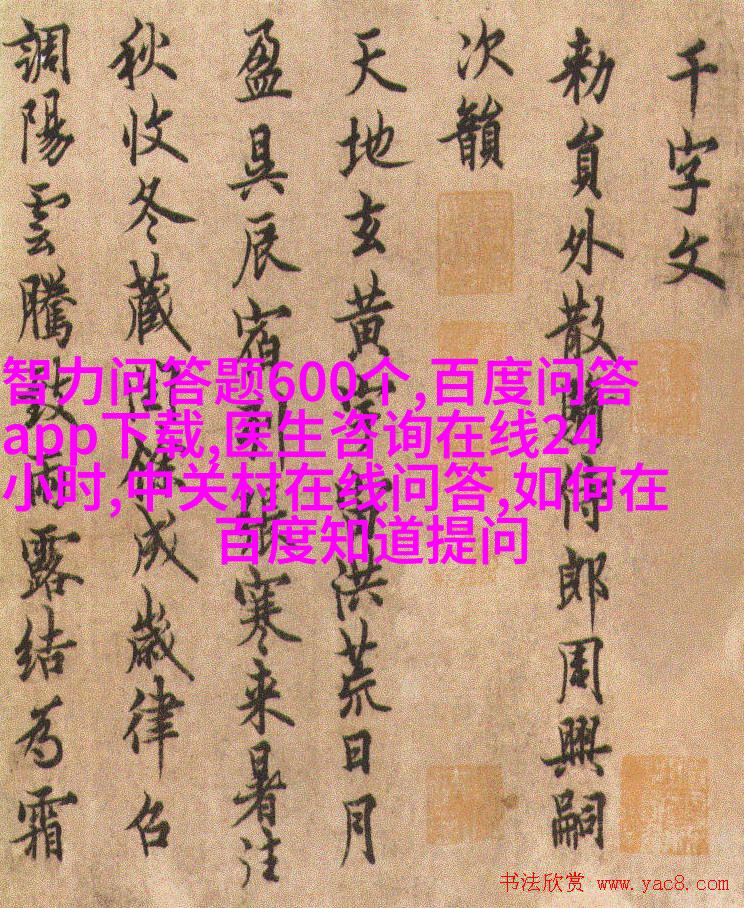 千字文
勅員外散騎侍郎周興嗣
次韻
天地玄黄宇宙洪荒日月
盈昃辰宿列張寒来暑往
秋收冬藏閏餘成歲律召
調陽雲騰致雨露結為霜
智力问答题600个,百度问答
app下载,医生咨询在线24
小时,中关村在线问答,如何在
百度知道提问
书法欣赏 www.yac8.com